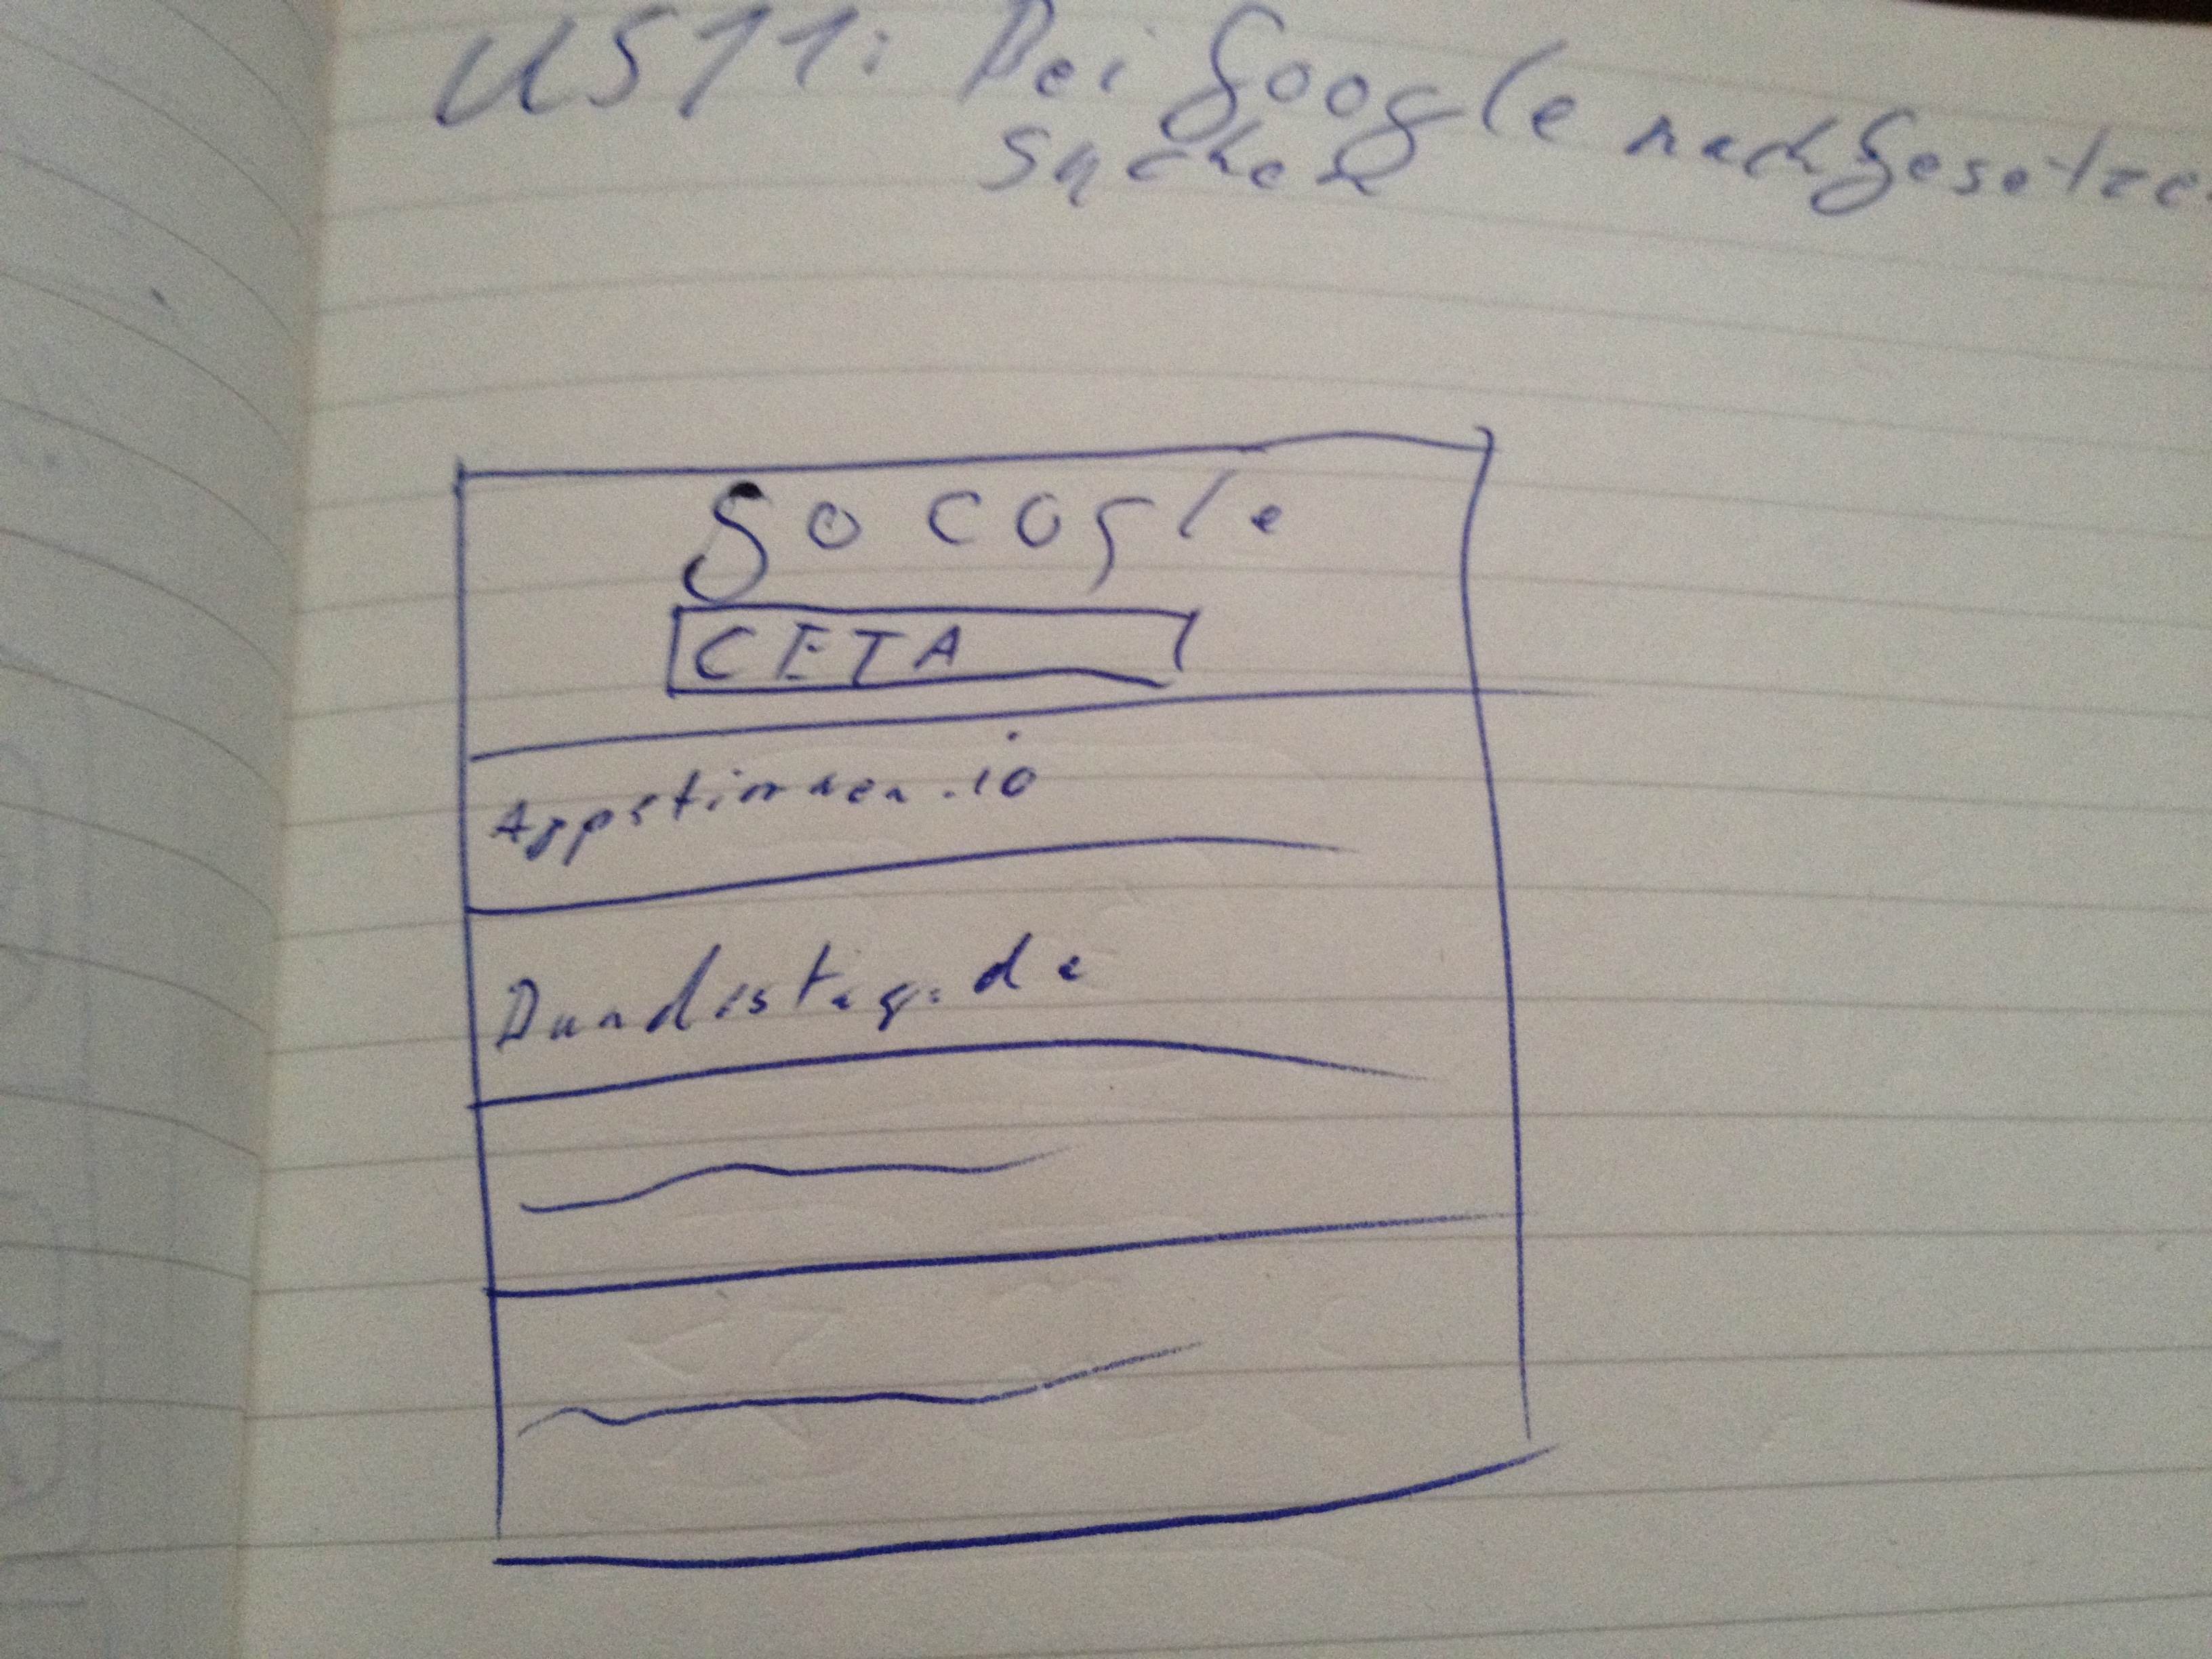 US11: Bei Google nach Gesetze
suchen
Gocogle
CETA
Appstimmen.io
Bundestag.de